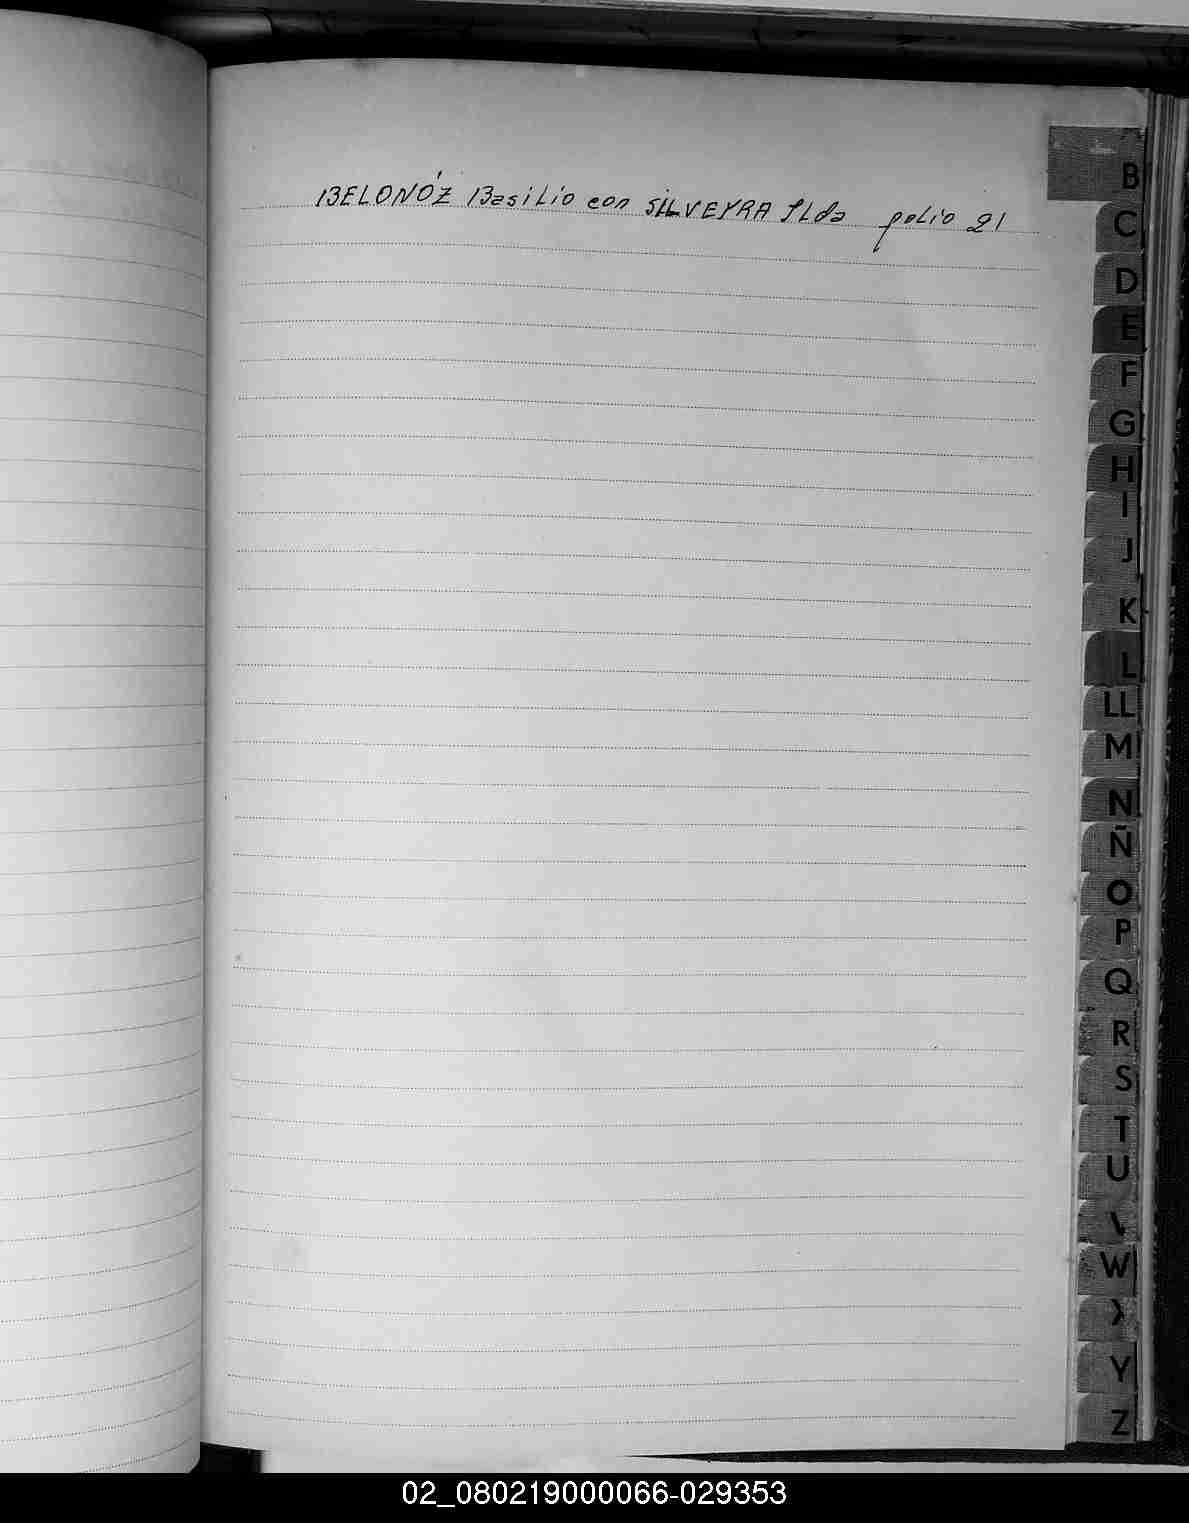 BELONÓZ Basilio con SILVEYRA Ilda folio 21
B
C
D
E
F
G
H
I
J
K
L
LL
M
N
Ñ
O
P
Q
R
S
T
U
V
W
X
Y
Z
02_080219000066-029353